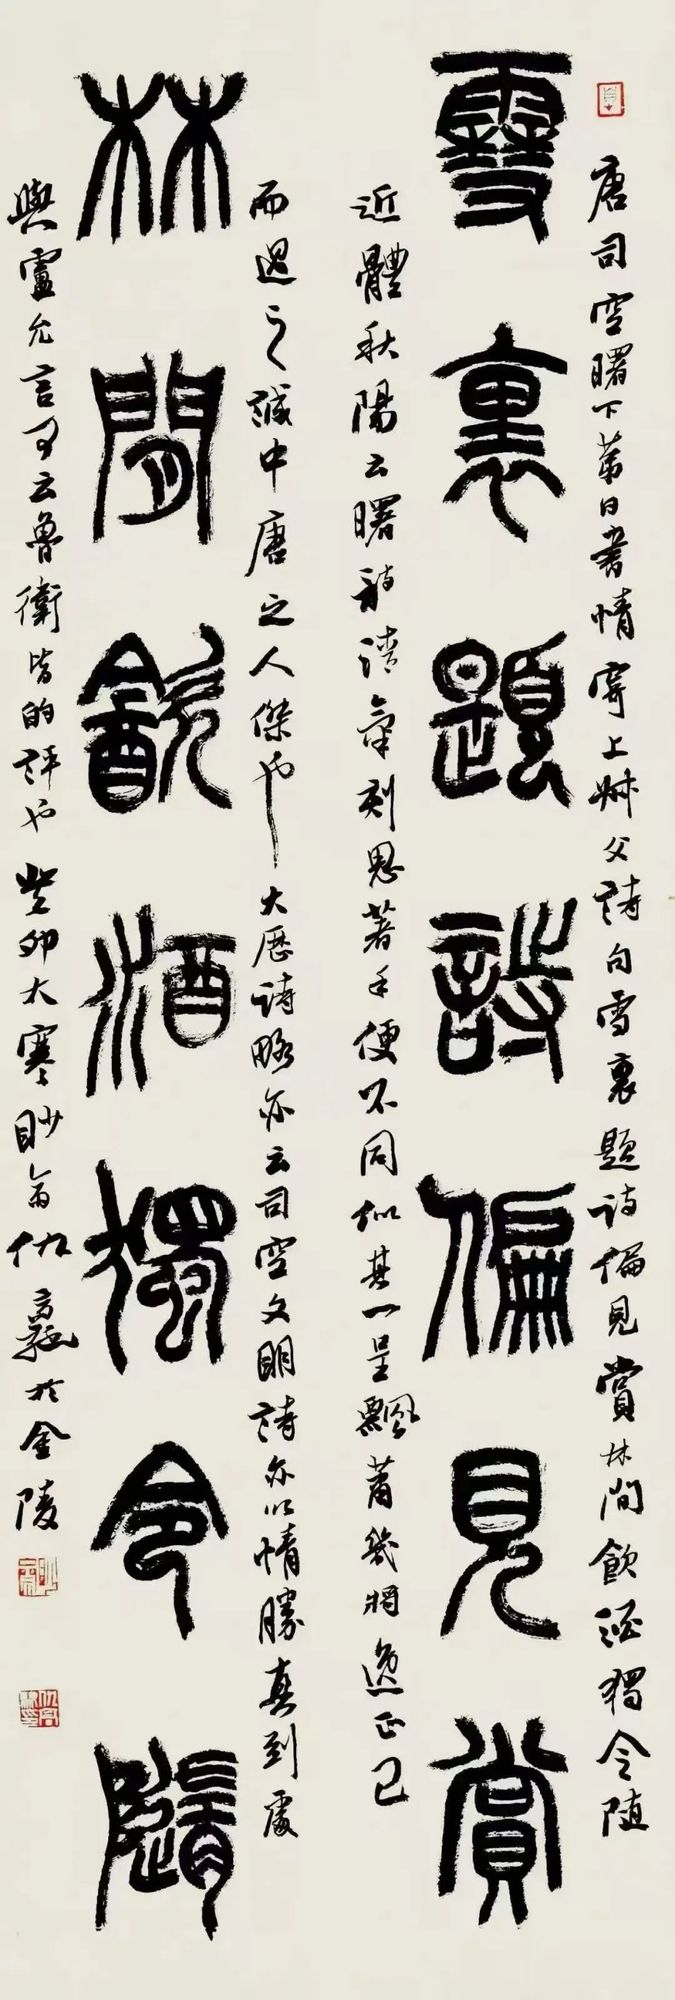 唐司空曙下第日書情寄上叔父詩句雪裏題詩偏見賞林間飲酒獨令随
雪裏題詩偏見賞
近體秋陽云曙詩清氣刻思著手便不同似其一呈飄蕭幾將逸正己
而過之誠中唐之人傑也大历詩略亦云司空文明詩亦以情勝真到處
林間飲酒獨令隨
與盧允言可云魯衛皆的評也癸卯大寒眇翁仇高馳於金陵